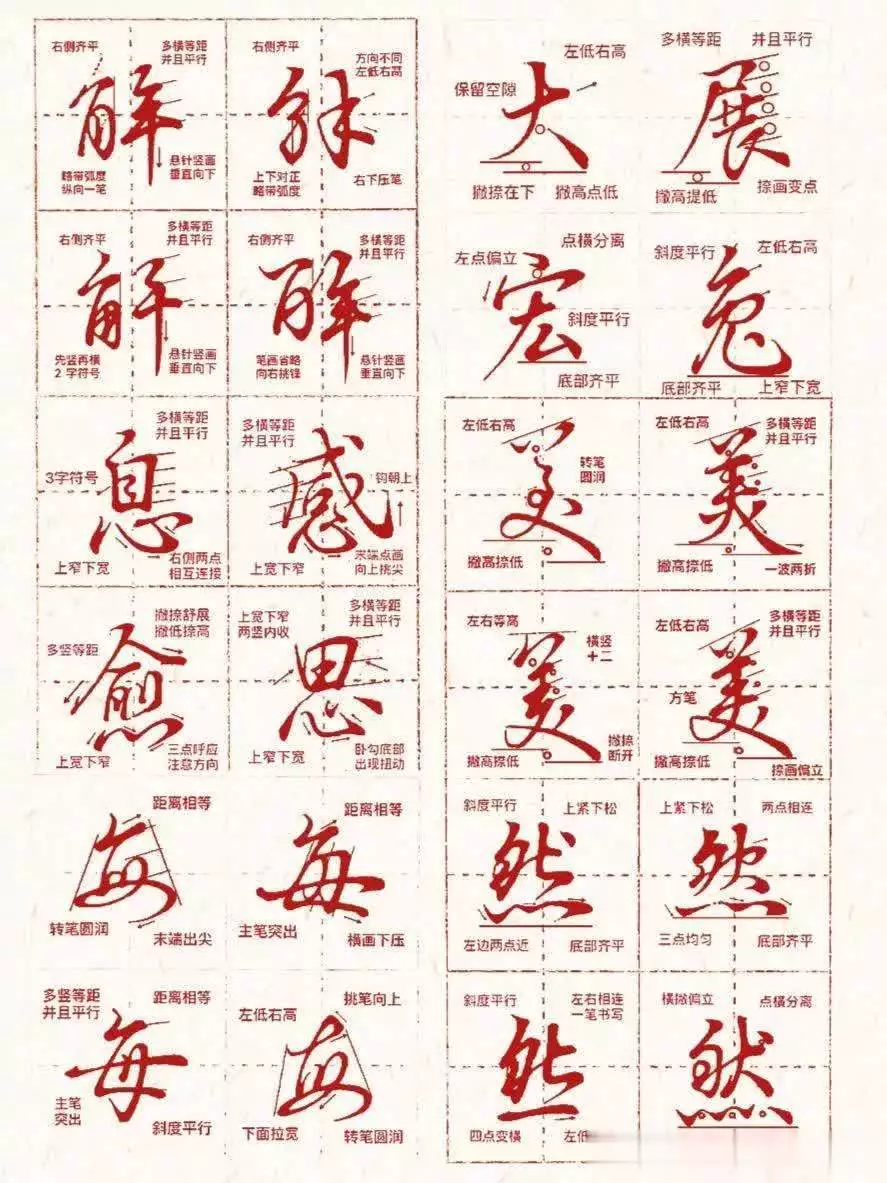 右侧齐平
多横等距
并且平行
解
略带弧度
纵向一笔
悬针竖画
垂直向下
右侧齐平
方向不同
左低右高
解
上下对正
略带弧度
右下压笔
右侧齐平
多横等距
并且平行
解
先竖再横
2 字符号
悬针竖画
垂直向下
右侧齐平
多横等距
并且平行
解
笔画省略
向右挑锋
悬针竖画
垂直向下
多横等距
并且平行
3字符号
息
上窄下宽
右侧两点
相互连接
多横等距
并且平行
钩朝上
感
上宽下窄
末端点画
向上挑尖
撇捺舒展
撇低捺高
多竖等距
愈
上宽下窄
三点呼应
注意方向
上宽下窄
两竖内收
多横等距
并且平行
思
上窄下宽
卧勾底部
出现扭动
距离相等
每
转笔圆润
末端出尖
距离相等
每
主笔突出
横画下压
多竖等距
并且平行
距离相等
每
主笔
突出
斜度平行
挑笔向上
左低右高
每
下面拉宽
转笔圆润
左低右高
保留空隙
大
撇捺在下
撇高点低
多横等距
并且平行
展
撇高提低
捺画变点
点横分离
左点偏立
宏
斜度平行
底部齐平
斜度平行
左低右高
兔
底部齐平
上窄下宽
左低右高
美
转笔
圆润
撇高捺低
左低右高
多横等距
并且平行
美
撇高捺低
一波两折
左右等高
横竖
十二
美
撇高捺低
撇捺
断开
左低右高
多横等距
并且平行
方笔
美
撇高捺低
捺画偏立
斜度平行
上紧下松
然
左边两点近
底部齐平
上紧下松
两点相连
然
三点均匀
底部齐平
斜度平行
左右相连
一笔书写
然
四点变横
左低
横撇偏立
点横分离
然